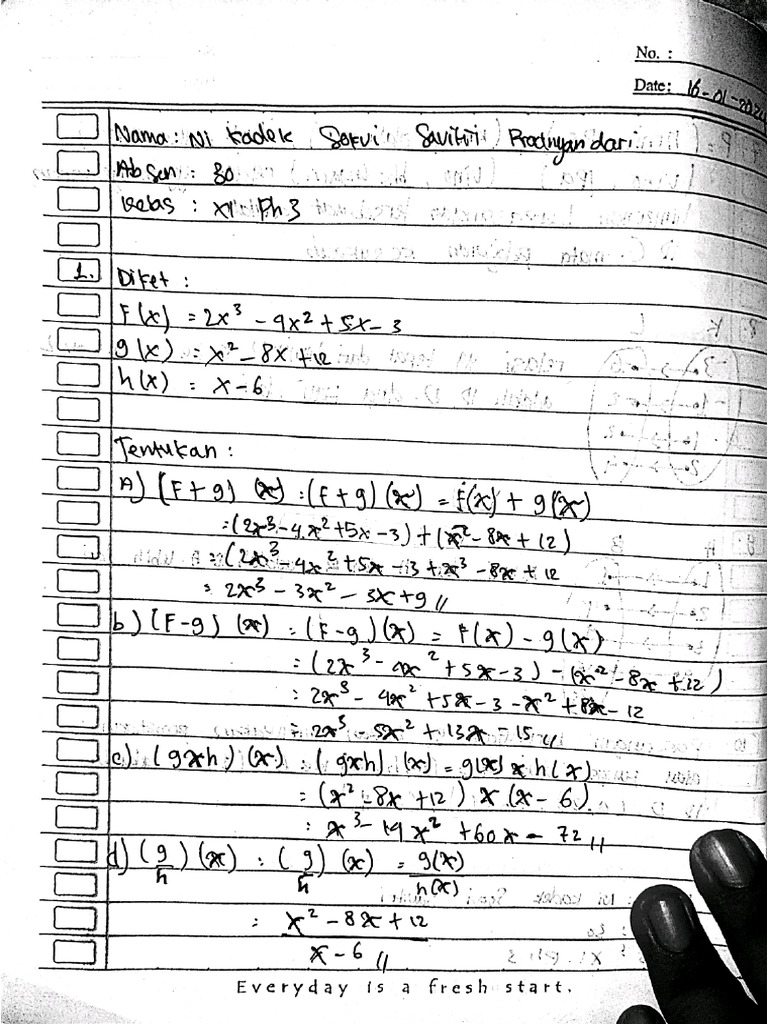 No. :
Date: 16-01-202
Nama: Ni Kadek Savitri Pradnyandari
Absen: 30
Kelas : XI Ph 3
1. Diket :
F(x) = 2x³ - 4x² + 5x - 3
g(x) = x² - 8x + 12
h(x) = x - 6
Tentukan :
A) (F+g) (x) : (F+g) (x) = f(x) + g(x)
= (2x³ - 4x² + 5x - 3) + (x² - 8x + 12)
= (2x³ - 4x² + 5x - 3 + x³ - 8x + 12
= 2x³ - 3x² - 3x + 9 //
b) (F-g) (x) = (F-g)(x) = F(x) - g(x)
= (2x³ - 4x² + 5x - 3) - (x² - 8x + 12)
= 2x³ - 4x² + 5x - 3 - x² + 8x - 12
= 2x³ - 5x² + 13x - 15 //
c) (g x h) (x) = (g x h) (x) = g(x) x h(x)
= (x² - 8x + 12) x (x - 6)
= x³ - 14x² + 60x - 72 //
d) (g/h) (x) = (g/h) (x) = g(x)/h(x)
= x² - 8x + 12
x - 6 //
Everyday is a fresh start.